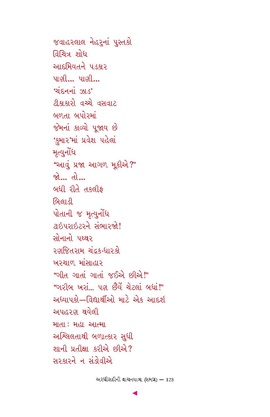 જવાહરલાલ નેહરુનાં પુસ્તકો
વિચિત્ર શોધ
આદમિયતને પડકાર
પાણી... પાણી...
'ચંદનનાં ઝાડ'
ટીકાકારો વચ્ચે વસવાટ
બળતા બપોરમાં
જેમનાં કાવ્યો પૂજાય છે
'કુમાર'માં પ્રવેશ પહેલાં
મૃત્યુનોંધ
"આવું પ્રજા આગળ મૂકીએ?"
જો.... તો....
બધી રીતે તકલીફ
બિલાડી
પોતાની જ મૃત્યુનોંધ
ટાઇપરાઇટરને સંભારજો!
સોનાનો પથ્થર
રણજિતરામ ચંદ્રક-ધારકો
ખરચાળ માંસાહાર
"ગીત ગાતાં ગાતાં જઈએ છીએ!"
"ગરીબ ખરાં... પણ છૈયેં ચેટલાં બધાં!"
અધ્યાપકો—વિદ્યાર્થીઓ માટે એક આદર્શ
અપહરણ થયેલી
માતા: મહા આત્મા
અશ્લિલતાથી બળાત્કાર સુધી
શાની પ્રતીક્ષા કરીએ છીએ?
સરકારને ન સંડોવીએ
— 123